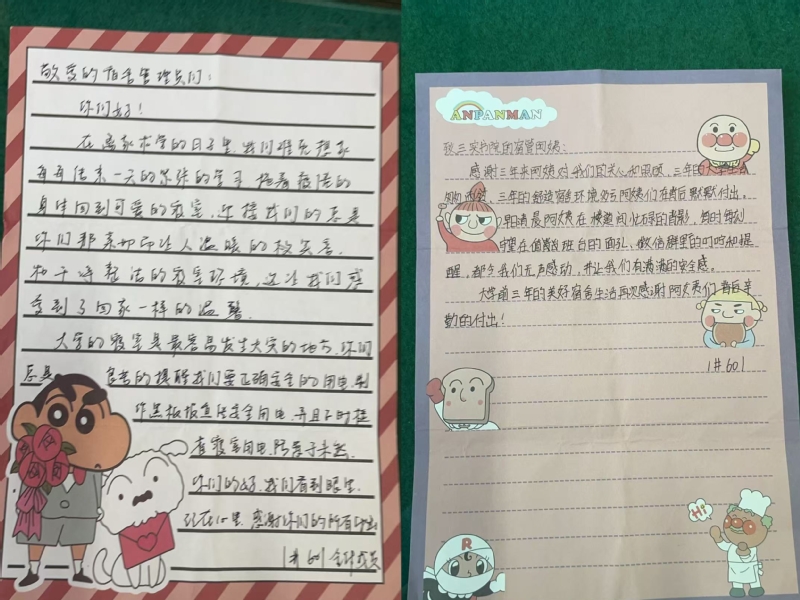 敬爱的宿舍管理员们：
你们好！
在离家求学的日子里，我们难免想家
每每结束一天的紧张的学习，拖着疲惫的
身体回到可爱的寝室，迎接我们的总是
你们那亲切而让人温暖的校笑容.
的寝室环境，这让我们感
受到了回家一样的温馨.
大学的寝室是最容易发生火灾的地方，你们
总是
的提醒我们要正确安全的用电，制
作黑板报宣传安全用电，并且不时检
查寝室用电，防患于未然.
你们的好，我们看到眼里，
记在心里，感谢你们的所有付出
1#601全体成员
ANPANMAN
三实书院的宿管阿姨：
感谢三年来阿姨对我们的关心和照顾，三年的大学生活
三年的舒适宿舍环境必与阿姨们在背后默默付出。
早清晨阿姨在楼道间忙碌的背影，每时每刻
值班台的面孔，微信群里的叮咛和提
醒，都令我们无声感动，并让我们有满满的安全感。
大学前三年的美好宿舍生活再次感谢阿姨们背后辛
勤的付出！
1#601
R
Hi